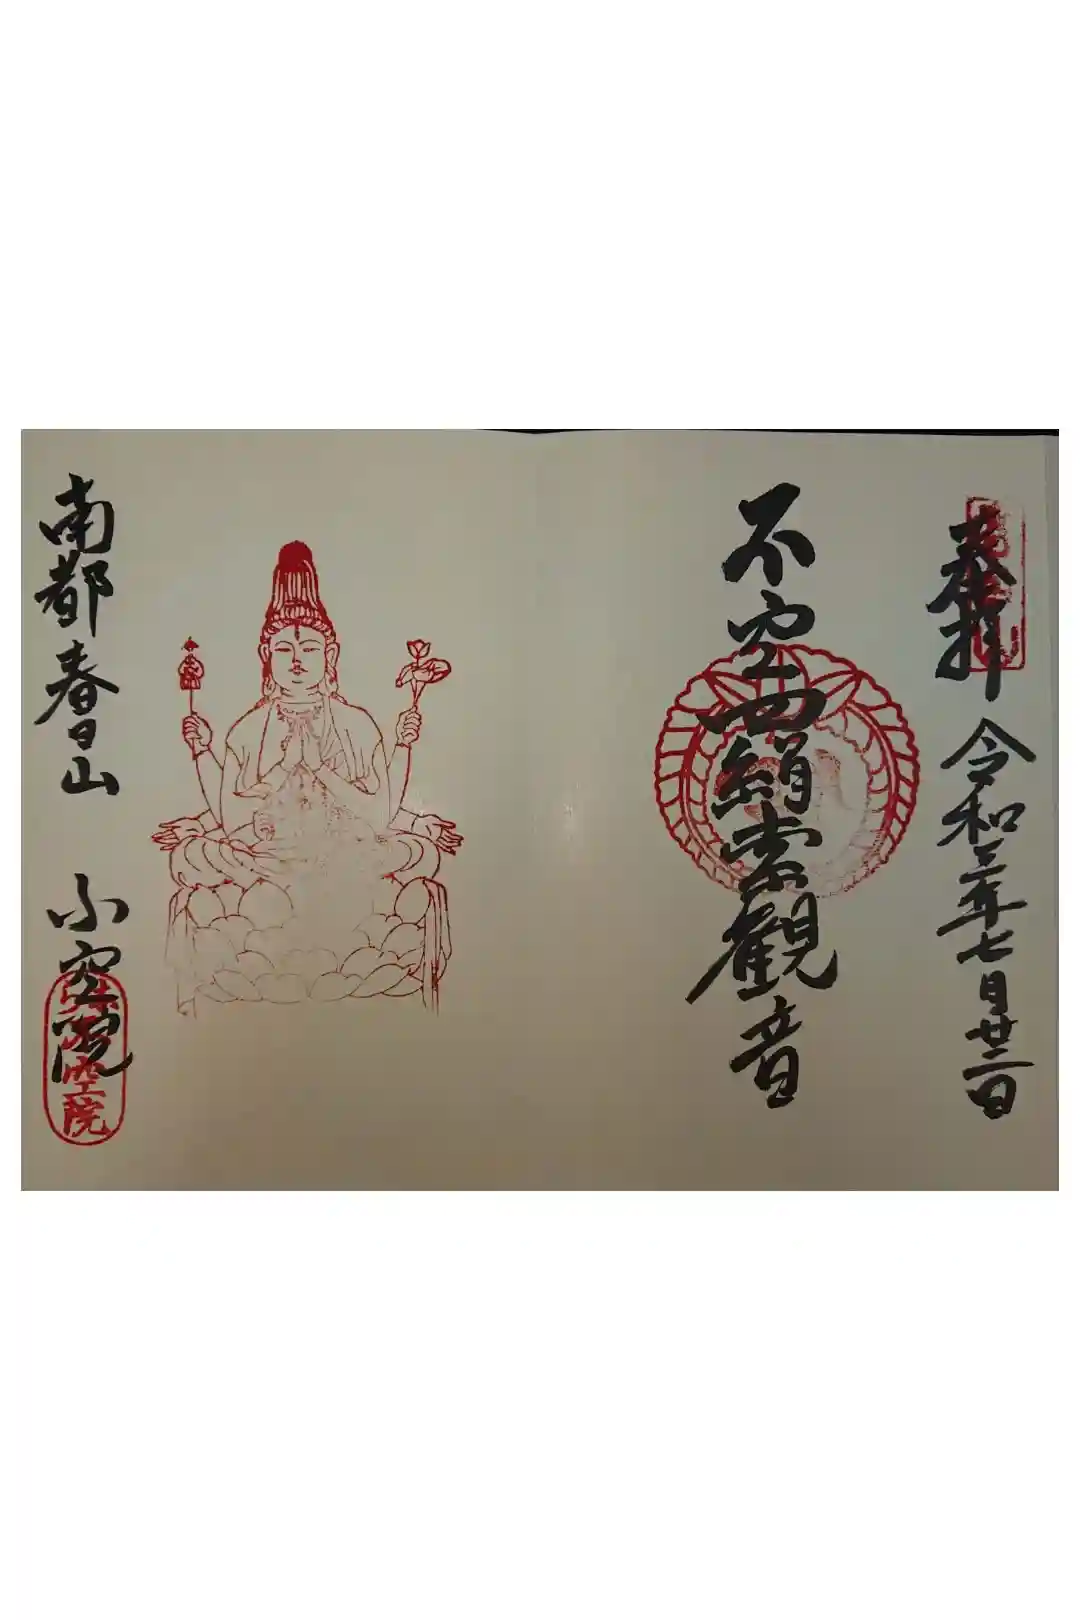 奉拝
令和三年七月廿二日
不空羂索観音
南都春日山
不空院
不空院